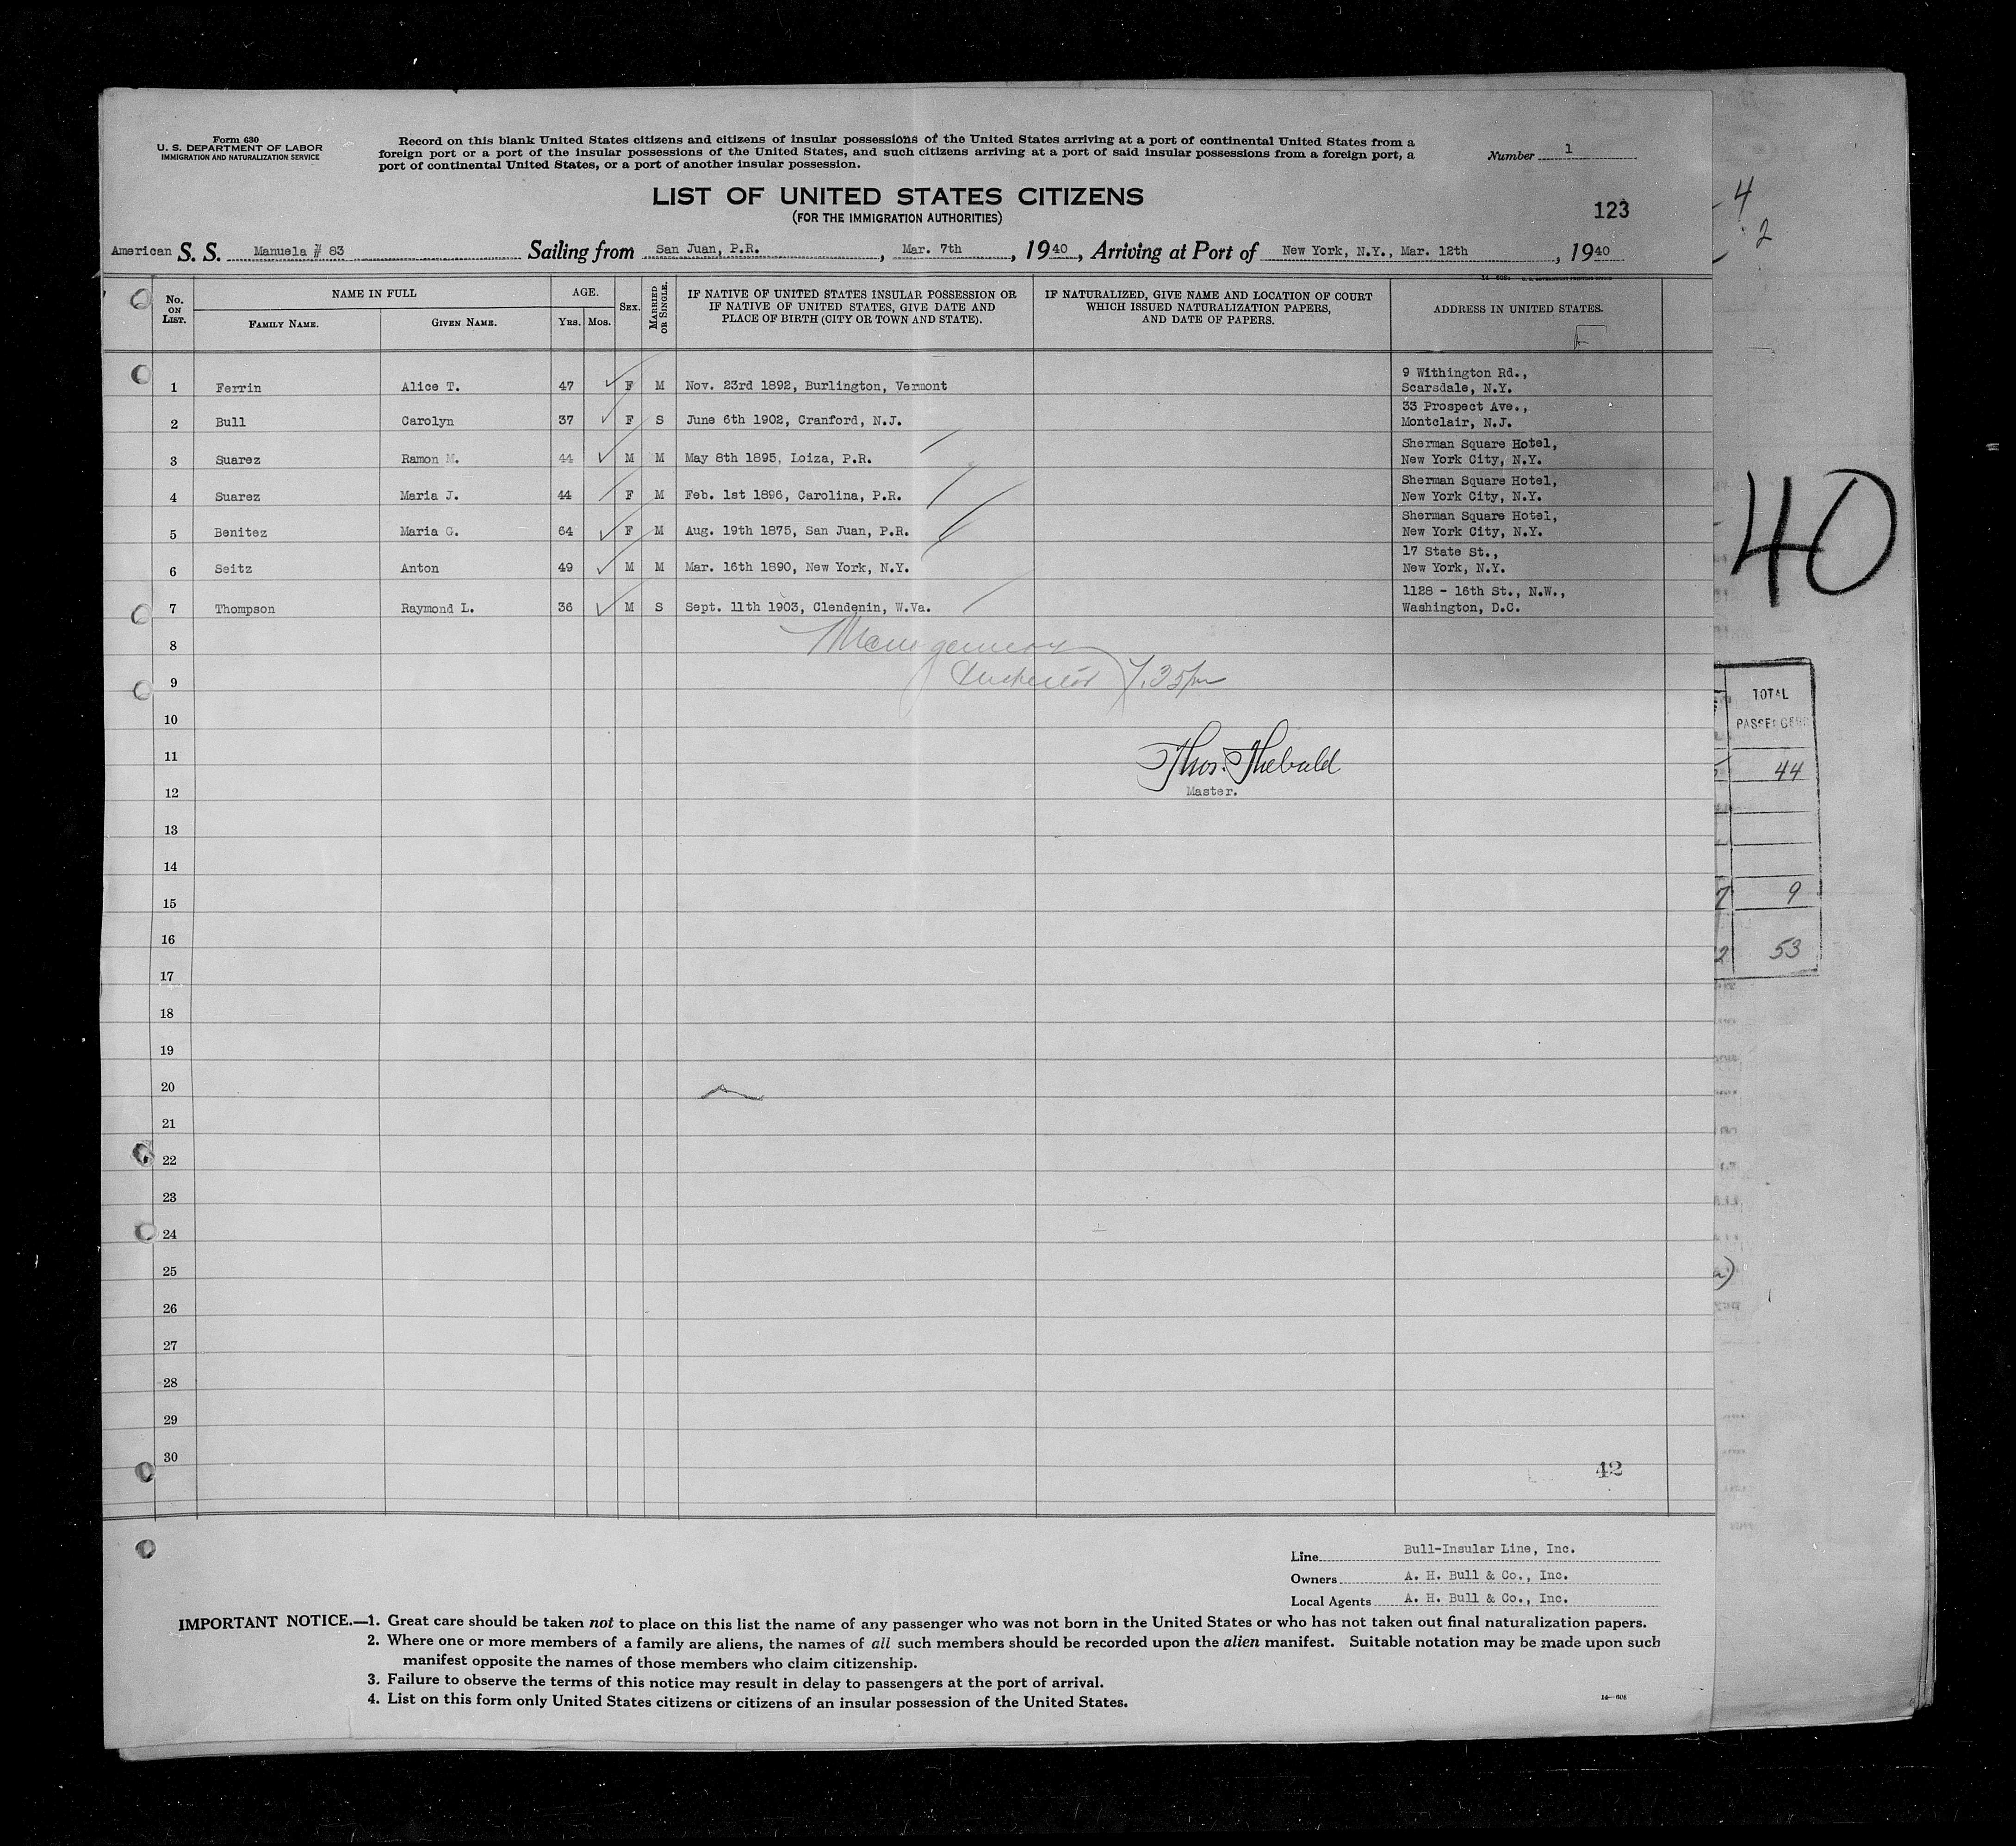 Form 630
U. S. DEPARTMENT OF LABOR
IMMIGRATION AND NATURALIZATION SERVICE
Record on this blank United States citizens and citizens of insular possessions of the United States arriving at a port of continental United States from a
foreign port or a port of the insular possessions of the United States, and such citizens arriving at a port of said insular possessions from a foreign port, a
port of continental United States, or a port of another insular possession.
Number 1
LIST OF UNITED STATES CITIZENS
(FOR THE IMMIGRATION AUTHORITIES)
123
American S. S. Manuela # 83 Sailing from San Juan, P.R., Mar. 7th, 1940, Arriving at Port of New York, N.Y., Mar. 12th, 1940
No. ON LIST. NAME IN FULL FAMILY NAME. GIVEN NAME. AGE. YRS. MOS. SEX. MARRIED OR SINGLE. IF NATIVE OF UNITED STATES INSULAR POSSESSION OR IF NATIVE OF UNITED STATES, GIVE DATE AND PLACE OF BIRTH (CITY OR TOWN AND STATE). IF NATURALIZED, GIVE NAME AND LOCATION OF COURT WHICH ISSUED NATURALIZATION PAPERS, AND DATE OF PAPERS. ADDRESS IN UNITED STATES.
1 Ferrin Alice T. 47 F M Nov. 23rd 1892, Burlington, Vermont 9 Withington Rd., Scarsdale, N.Y.
2 Bull Carolyn 37 F S June 6th 1902, Cranford, N.J. 33 Prospect Ave., Montclair, N.J.
3 Suarez Ramon M. 44 M M May 8th 1895, Loiza, P.R. Sherman Square Hotel, New York City, N.Y.
4 Suarez Maria J. 44 F M Feb. 1st 1896, Carolina, P.R. Sherman Square Hotel, New York City, N.Y.
5 Benitez Maria G. 64 F M Aug. 19th 1875, San Juan, P.R. Sherman Square Hotel, New York City, N.Y.
6 Seitz Anton 49 M M Mar. 16th 1890, New York, N.Y. 17 State St., New York, N.Y.
7 Thompson Raymond L. 36 M S Sept. 11th 1903, Clendenin, W.Va. 1128 - 16th St., N.W., Washington, D.C.
8
9
10
11
Thos. Thebald
12 Master.
13
14
15
16
17
18
19
20
21
22
23
24
25
26
27
28
29
30
42
Line Bull-Insular Line, Inc.
Owners A. H. Bull & Co., Inc.
Local Agents A. H. Bull & Co., Inc.
IMPORTANT NOTICE.—1. Great care should be taken not to place on this list the name of any passenger who was not born in the United States or who has not taken out final naturalization papers.
2. Where one or more members of a family are aliens, the names of all such members should be recorded upon the alien manifest. Suitable notation may be made upon such
manifest opposite the names of those members who claim citizenship.
3. Failure to observe the terms of this notice may result in delay to passengers at the port of arrival.
4. List on this form only United States citizens or citizens of an insular possession of the United States.
4
2
40
TOTAL
PASSENGERS
44
7 9
2 53